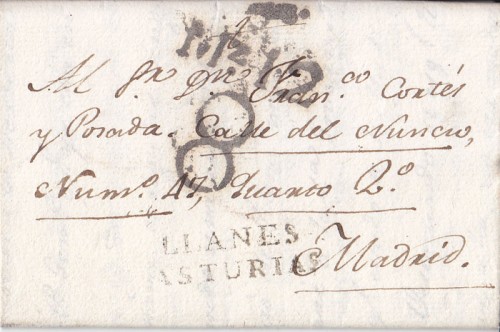 A
Al Sr. Dn. Fran.co Cortés
y Posada. Calle del Nuncio,
Num.o 47, Quarto 2.o
LLANES
ASTURIAS
Madrid.